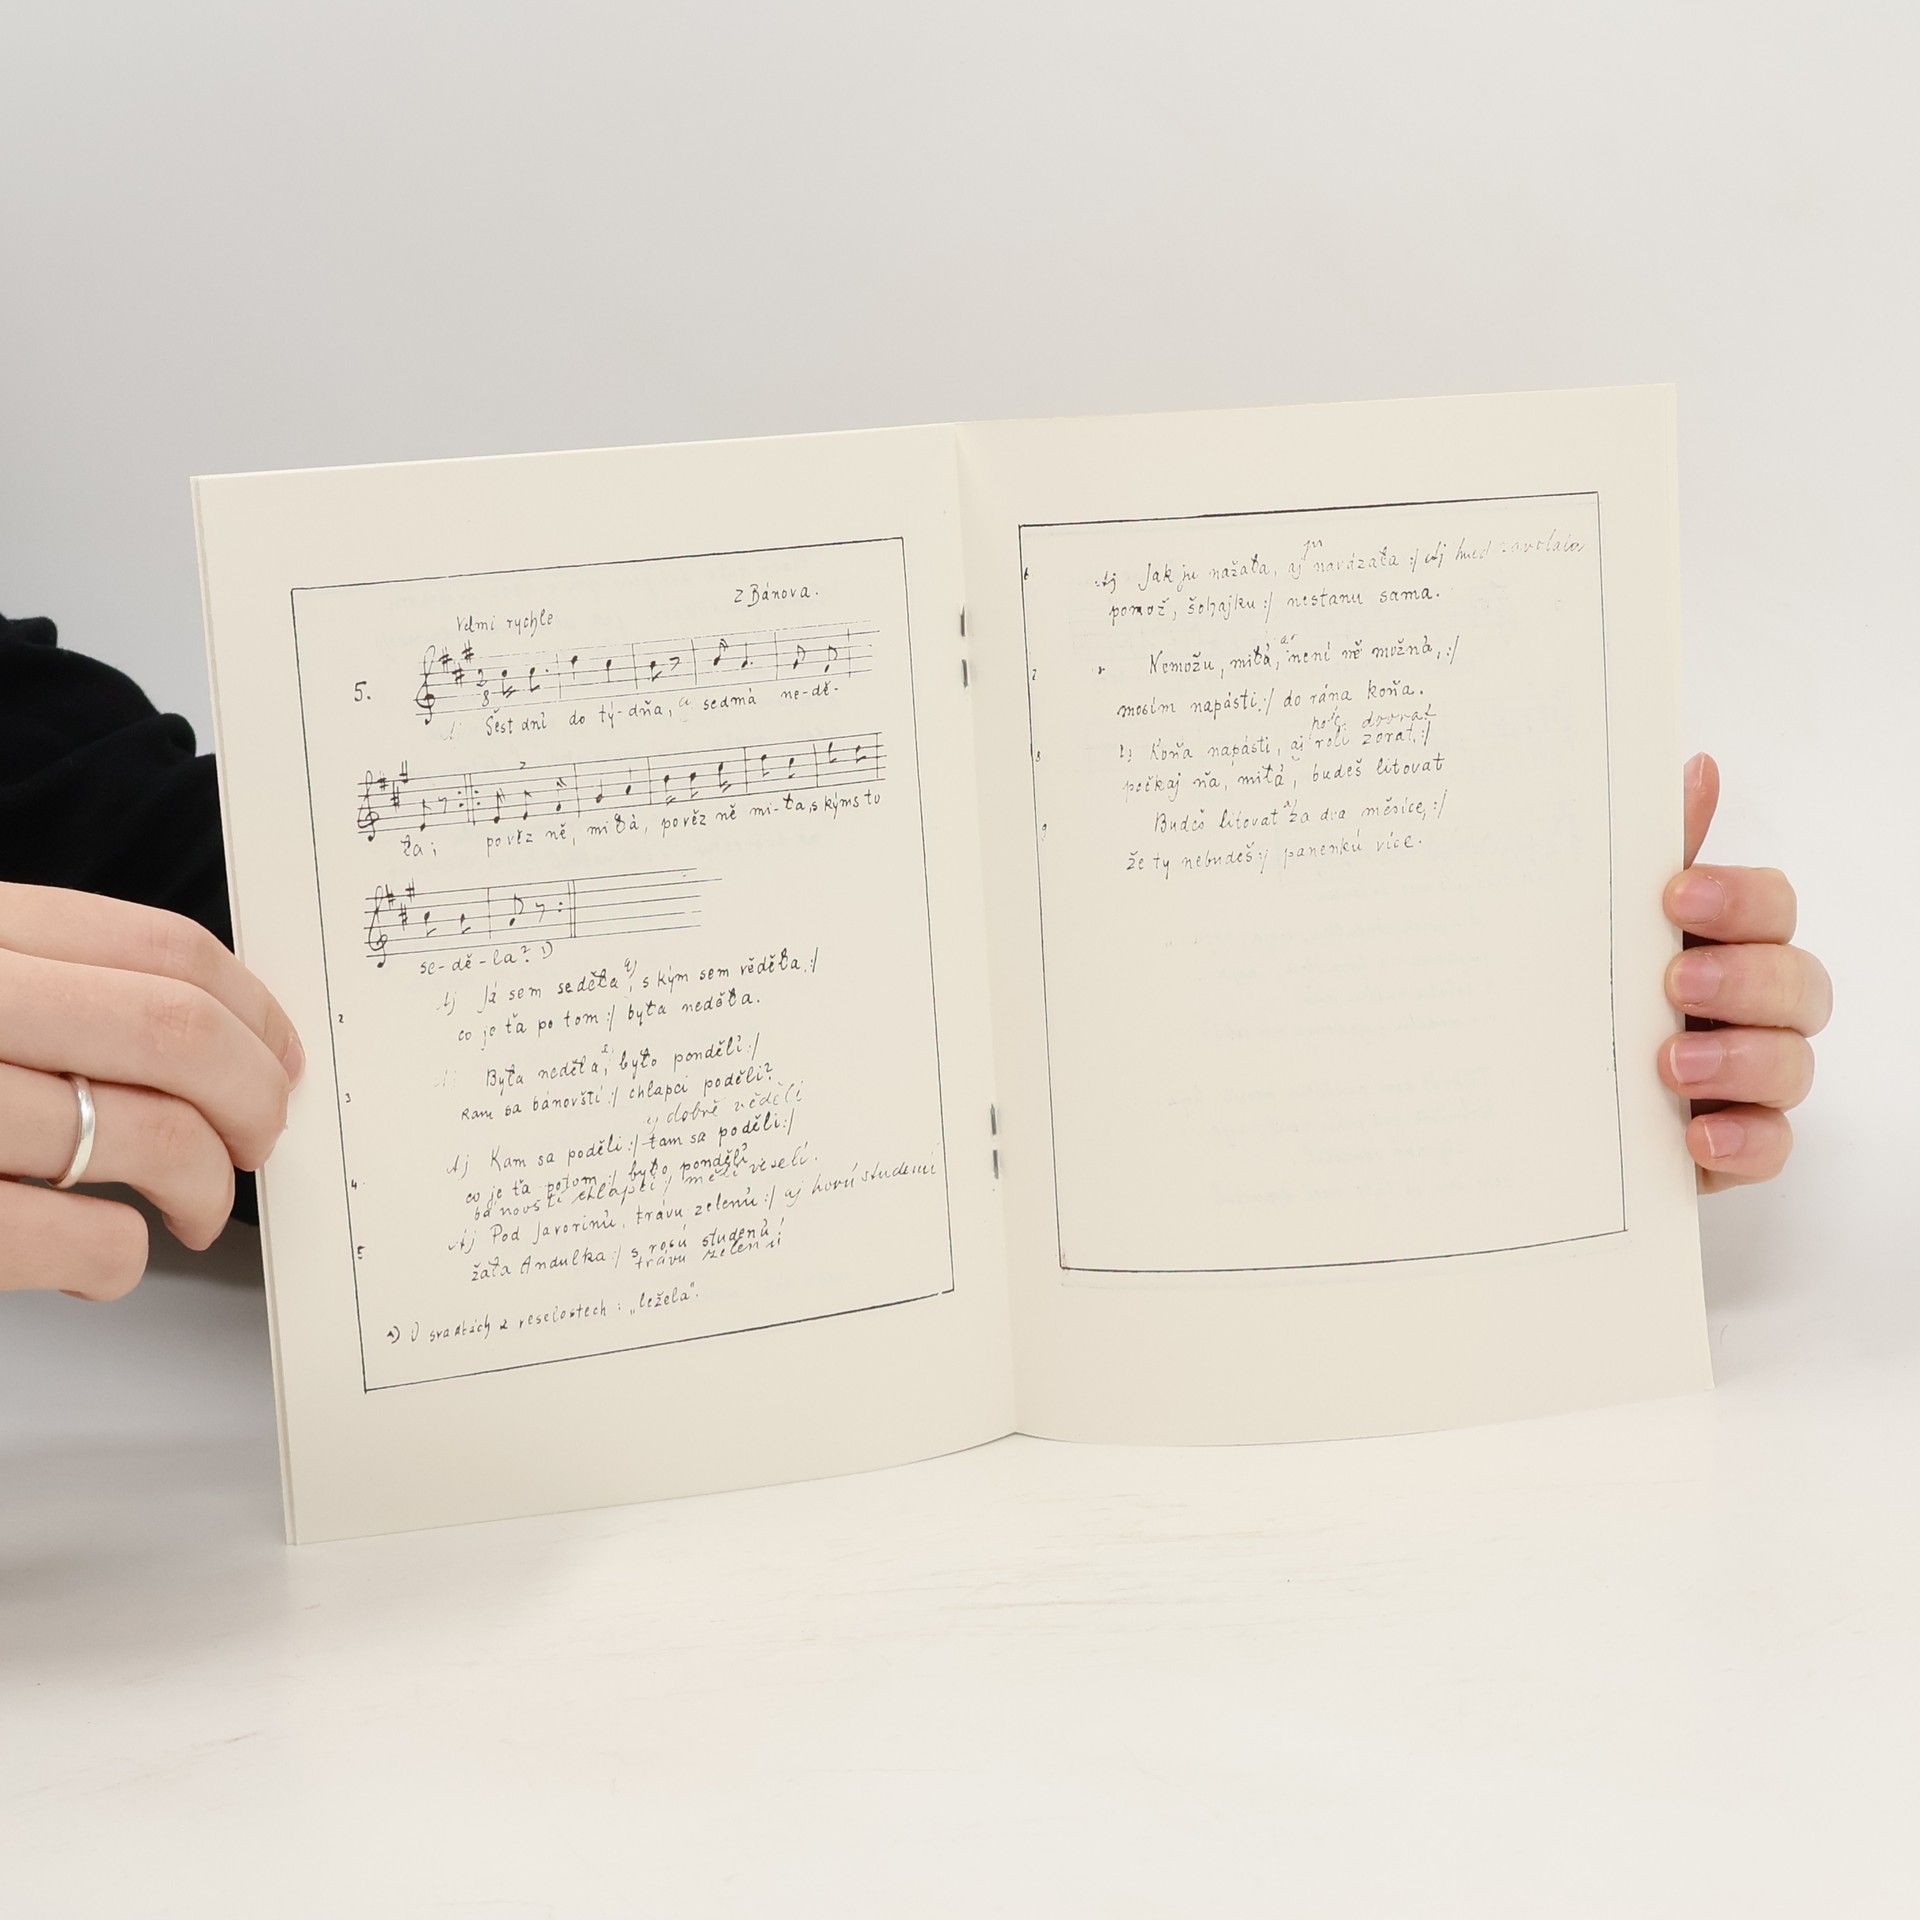 Z Bánova.
Velmi rychle
5.
Šest dní do tý-dňa, a sedmá ne-dě-
ła; pověz ně, miłá, pověz ně mi-ła, s kýms to
se-dě-la? 1)
2 Aj Já sem seděła, s kým sem věděła,:/
co je ťa po tom :/ była neděła.
3 Była neděła, było pondělí :/
Kam sa bánovští :/ chlapci poděli?
dobře věděli
4. Aj Kam sa poděli :/ tam sa poděli :/
co je ťa potom :/ było pondělí
bánovští chlapci / měli veselí.
5 Aj Pod Javorinú, trávu zelenú :/ aj horú studenú
žała Andulka :/ s rosú studenú
trávu zelenú
1) O svatbách a veselostech : „ležela".
6 Aj Jak ju nažała, aj ju navázała :/ Aj hned zavolała
pomož, šohajku :/ nestanu sama.
7 Nemožu, miłá, není ně možná, :/
mosím napásti :/ do rána koňa.
8 Koňa napásti, aj roli zorat :/
počkaj ňa, miłá, budeš litovat
9 Budeš litovat za dva měsíce, :/
že ty nebudeš :/ panenkú více.